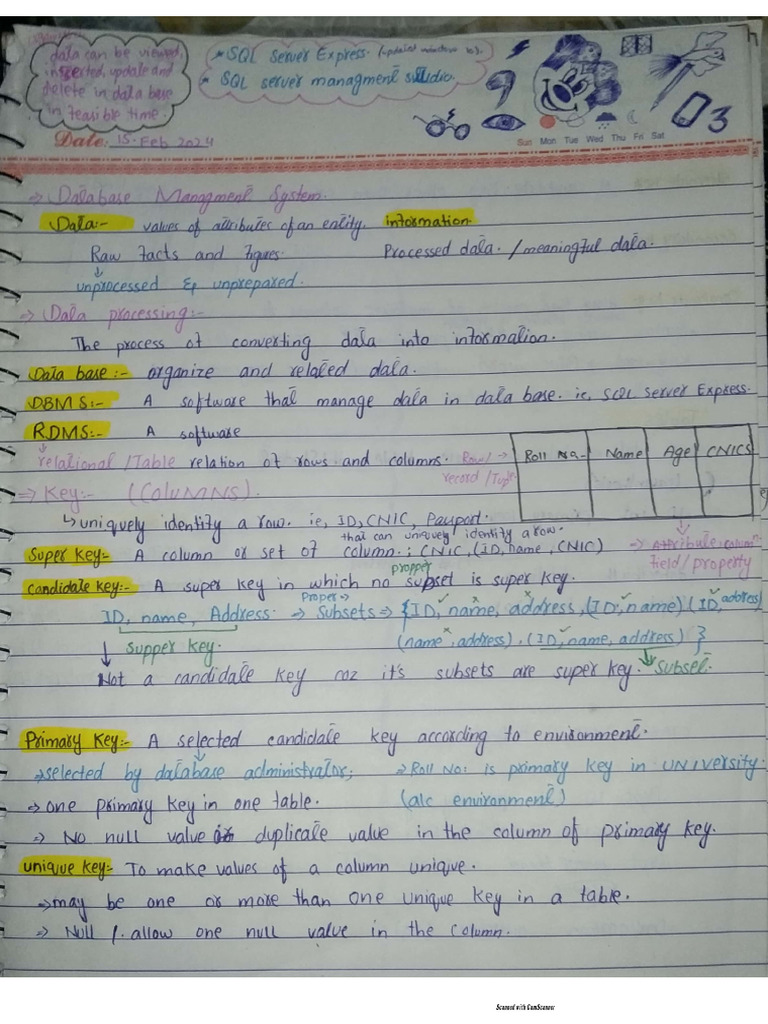 data can be viewed,
inserted, update and
delete in data base
in feasible time.
* SQL Server Express. (updated windows 10).
* SQL server managment studio.
03
Date: 15-Feb 2024
Sun Mon Tue Wed Thu Fri Sat
⇒ Database Managment System.
Data:- values of attributes of an entity. information.
Raw facts and figures. Processed data. / meaningful data.
unprocessed & unprepared.
⇒ Data processing:-
The process of converting data into information.
Data base:- organize and related data.
DBMS:- A software that manage data in data base. ie, SQL Server Express.
RDMS:- A software
relational/Table relation of rows and columns. Row/ → Roll No. Name Age CNICS
record/Tuple
⇒ Key:- (COLUMNS).
↳ uniquely identify a row. ie, ID, CNIC, Passport.
that can uniquely identify a row.
Super Key:- A column or set of column.; CNIC, (ID, name, CNIC) → Attribute, column
field/property
propper
candidate key:- A super key in which no subset is super key.
ID, name, Address. Proper→ ⇒ Subsets ⇒ {ID, name, address, (ID, name) (ID, address)
Supper key. (name, address), (ID, name, address) }
Not a candidate key coz it's subsets are super key. Subset.
Primary Key:- A selected candidate key according to environment.
→ selected by database administrator; → Roll No: is primary key in UNIversity.
→ one primary key in one table. (alc environment)
→ No null value or duplicate value in the column of primary key.
unique key:- To make values of a column unique.
→ may be one or more than one unique key in a table.
→ Null /. allow one null value in the column.
Scanned with CamScanner